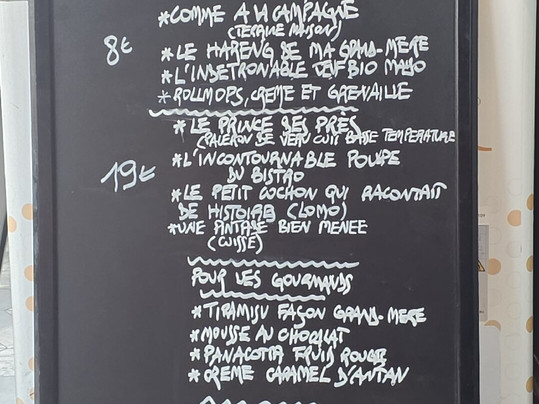 *COMME A LA CAMPAGNE
(TERRINE MAISON)
8€
*LE HARENG DE MA GRAND-MERE
*L'INDETRONABLE OEUF BIO MAYO
*ROLLMOPS, CREME ET GRENAILLE
*LE PRINCE DES PRÈS
(PALERON DE VEAU CUIT BASSE TEMPERATURE
*L'INCONTOURNABLE POULPE
DU BISTRO
19€
*LE PETIT COCHON QUI RACONTAIT
DE HISTOIRES (LOMO)
*UNE PINTADE BIEN MENEE
(CUISSE)
POUR LES GOURMANDS
*TIRAMISU FAÇON GRAND-MERE
*MOUSSE AU CHOCOLAT
*PANACOTTA FRUIS ROUGE
*CREME CARAMEL D'ANTAN